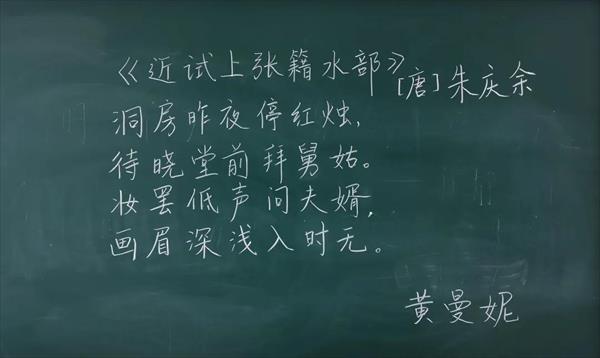 《近试上张籍水部》[唐]朱庆余
洞房昨夜停红烛,
待晓堂前拜舅姑。
妆罢低声问夫婿,
画眉深浅入时无。
黄曼妮